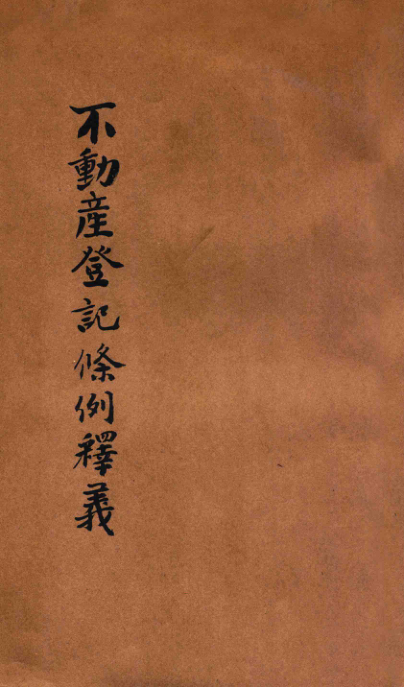 不動産登記條例釋義